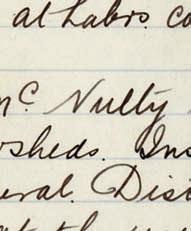 at Labrs. co
Mc Nulty
rsheds. Ins
eral. Dist